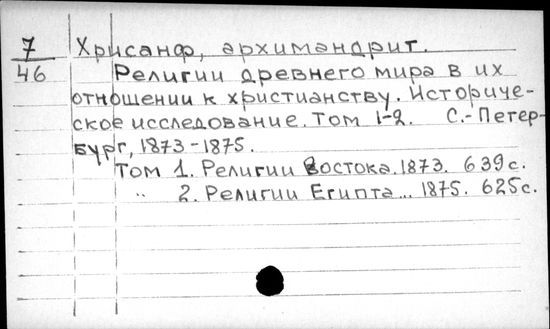 7 Хрисанф, архимандрит.
46 Религии древнего мира в их
отношении к христианству. Историче-
ское исследование. Том 1-2. С.-Петер-
бург, 1873-1875.
Том 1. Религии Востока. 1873. 639 с.
„ 2. Религии Египта... 1875. 625 с.